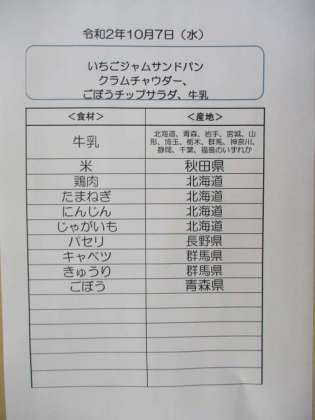 令和2年10月7日（水）
いちごジャムサンドパン
クラムチャウダー、
ごぼうチップサラダ、牛乳
＜食材＞ ＜産地＞
牛乳 北海道、青森、岩手、宮城、山
形、埼玉、栃木、群馬、神奈川、
静岡、千葉、福島のいずれか
米 秋田県
鶏肉 北海道
たまねぎ 北海道
にんじん 北海道
じゃがいも 北海道
パセリ 長野県
キャベツ 群馬県
きゅうり 群馬県
ごぼう 青森県